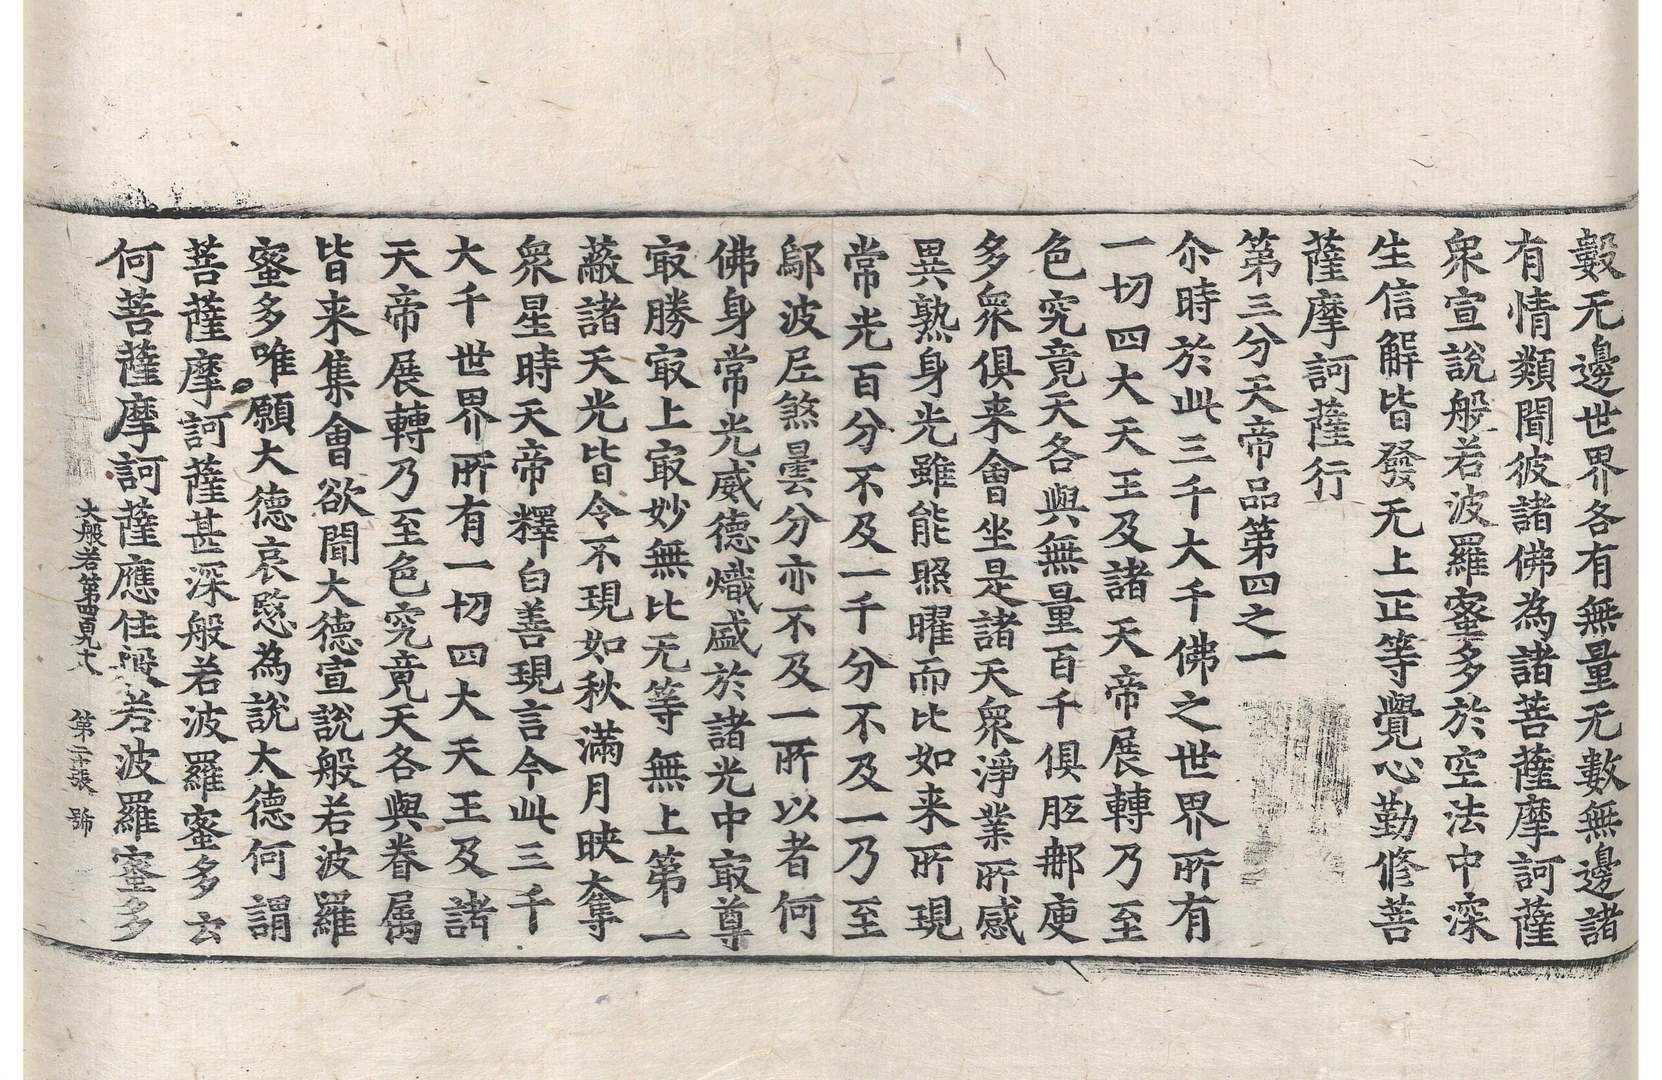 數无邊世界各有無量无數無邊諸
有情類聞彼諸佛為諸菩薩摩訶薩
衆宣說般若波羅蜜多於空法中深
生信解皆發无上正等覺心勤修菩
薩摩訶薩行
第三分天帝品第四之一
尒時於此三千大千佛之世界所有
一切四大天王及諸天帝展轉乃至
色究竟天各與無量百千俱胝那庾
多衆俱来會坐是諸天衆淨業所感
異熟身光雖能照曜而比如来所現
常光百分不及一千分不及一乃至
鄔波尼煞曇分亦不及一所以者何
佛身常光威德熾盛於諸光中冣尊
冣勝冣上冣妙無比无等無上第一
蔽諸天光皆令不現如秋滿月映奪
衆星時天帝釋白善現言今此三千
大千世界所有一切四大天王及諸
天帝展轉乃至色究竟天各與眷属
皆来集會欲聞大德宣說般若波羅
蜜多唯願大德哀愍為說大德何謂
菩薩摩訶薩甚深般若波羅蜜多云
何菩薩摩訶薩應住般若波羅蜜多
大般若第四百九十八 第二十張 號